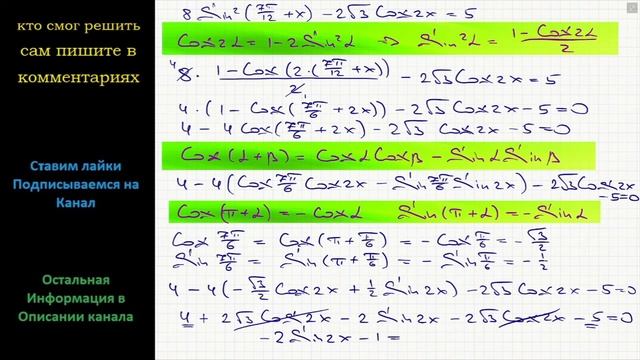 кто смог решить
сам пишите в
комментариях
Ставим лайки
Подписываемся на
Канал
Остальная
Информация в
Описании канала
8 Sin²(7π/12 + x) − 2√3 Cos 2x = 5
Cos 2α = 1 − 2 Sin²α ⇒ Sin²α = (1 − Cos 2α)/2
⁴8 · (1 − Cos(2·(7π/12 + x)))/2₁ − 2√3 Cos 2x = 5
4 · (1 − Cos(7π/6 + 2x)) − 2√3 Cos 2x − 5 = 0
4 − 4 Cos(7π/6 + 2x) − 2√3 Cos 2x − 5 = 0
Cos(α + β) = Cos α Cos β − Sin α Sin β
4 − 4(Cos 7π/6 Cos 2x − Sin 7π/6 Sin 2x) − 2√3 Cos 2x − 5 = 0
Cos(π + α) = − Cos α Sin(π + α) = − Sin α
Cos 7π/6 = Cos(π + π/6) = − Cos π/6 = − √3/2
Sin 7π/6 = Sin(π + π/6) = − Sin π/6 = − 1/2
4 − 4(− √3/2 Cos 2x + 1/2 Sin 2x) − 2√3 Cos 2x − 5 = 0
4 + 2√3 Cos 2x − 2 Sin 2x − 2√3 Cos 2x − 5 = 0
− 2 Sin 2x − 1 =